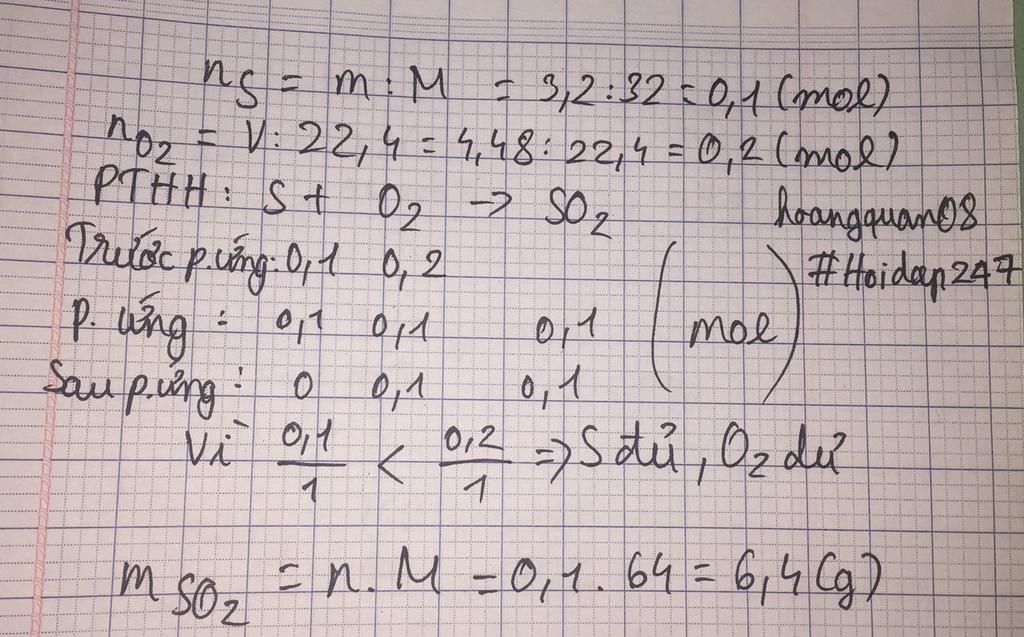 nS = m : M = 3,2 : 32 = 0,1 (mol)
nO2 = V : 22,4 = 4,48 : 22,4 = 0,2 (mol)
PTHH : S + O2 -> SO2
hoangquan08
Trước p.ứng: 0,1 0,2
#Hoidap247
P. ứng : 0,1 0,1 0,1 (mol)
Sau p.ứng : 0 0,1 0,1
Vì 0,1/1 < 0,2/1 => S đủ, O2 dư
mSO2 = n . M = 0,1 . 64 = 6,4 (g)